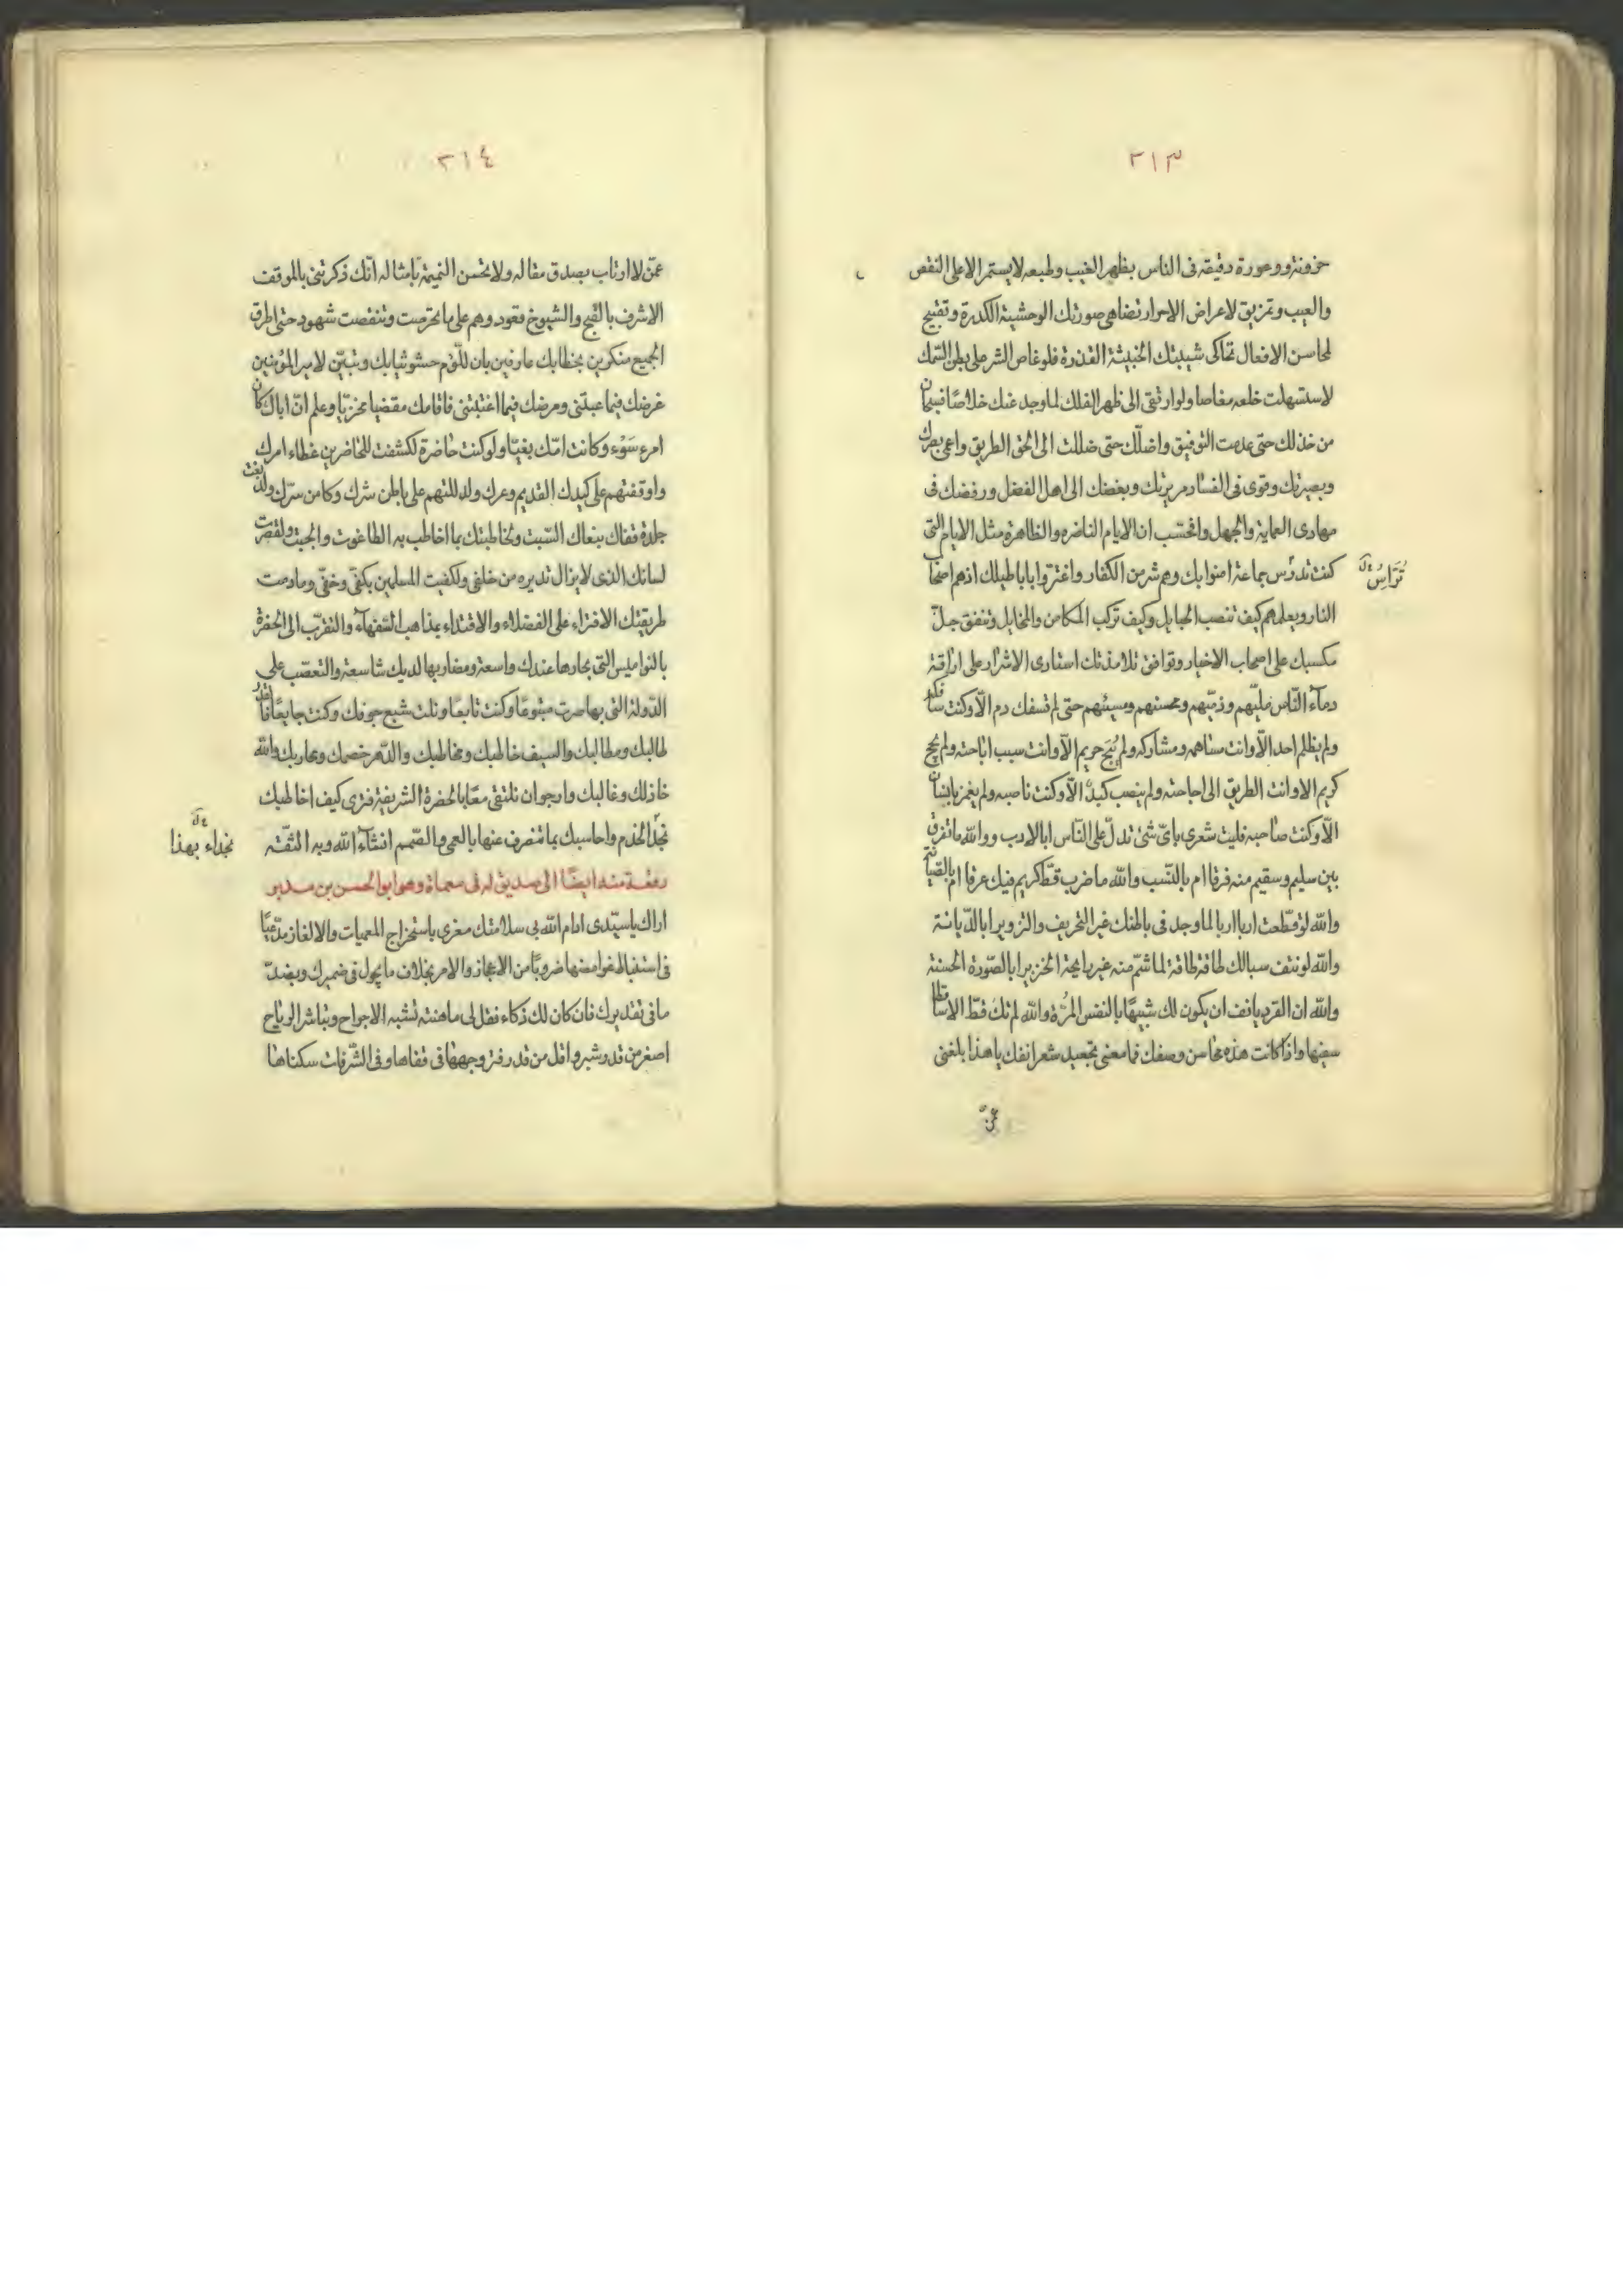 ٣١٣
حزونة ووعورة دقيقه فى الناس بظهر الغيب ولمبعه لايستمر الا على النقص
والعيب وتمزيق لاعراض الاحرار تضاهى صورتك الوحشية الكدرة وتقبيح
لمحاسن الافعال تحاكى شيبتك الخبيثة القذرة فلو غاص الشر على بطن السمك
لاستسهلت خلعه مغاصا ولو ارتقى الى ظهر الفلك لما وجد عنك خلاصًا فسبحان
من خذلك حتى عدمت التوفيق واضلّك حتى ضللت الى الحق الطريق واعمى بصرك
وبصيرتك وقوى فى الفساد مريرتك وبغضك الى اهل الفضل ورفضك فى
مهاوى العماية والجهل واتحتسب ان الايام الناضره والظاهرة مثل الايام التى
كنت تدرّس جماعة امنوا بك وهم شر من الكفار واغتروا باباطيلك اذ هم اصحاب
تَرَاسُ
النار وبعلمهم كيف تنصب الحبايل وكيف تركب المكامن والمخايل وتنفق جلّ
مكسبك على اصحاب الاخبار وتوافق تلامذتك استارى الاشرار على اراقة
دماء النّاس مليّهم وذمّيهم ومحسنهم ومسيئهم حتى لم تسفك دم الّا وكنت سافكه
ولم يظلم احد الّا وانت مساهمه ومشاركه ولم يُبَح حريم الّا وانت سبب اباحته ولم يجح
كريم الا وانت الطريق الى اجاحته ولم ينصب كيدٌ الّا وكنت ناصبه ولم يغمز بانسان
الّا وكنت صاحبه فليت شعرى باىّ شئ تدلّ على النّاس ابالادب ووالله ماتفرق
بين سليم وسقيم منه فرقا ام بالنّسب والله ما ضرب قطّ كريم فيك عرقا ام بالصّيانة
والله لو قطّعت اربا اربا لما وجد فى باطنك غير التحريف والتزوير ابالدّيانة
والله لو نتف سبالك طاقة طاقة لما شمّ منه غير رايحة الخنزير ابالصّورة الحسنة
والله ان القرد يانف ان يكون لك شبيهًا بالنفس المرّة والله لم تك قطّ الا ساقطا
سفيها واذا كانت هذه محاسن وصفك فما معنى تجعيد شعر انفك ياهذا بلغنى
عمّن
٣١٤
عمّن لا ارتاب بصدق مقاله ولا تحسن النميمة بامثاله انّك ذكرتنى بالموقف
الاشرف بالقبح والشيوخ قعود وهم على ما تخرصت وتنقصت شهود حتى اطرق
الجميع منكرين بخطابك عارفين بان للّؤم حشو ثيابك وتبيّن لامير المؤمنين
غرضك فيما عبتنى ومرضك فيما اغتبتنى فاقامك مقصيا مخزيّا وعلم انّ اباك كان
امرء سَوْء وكانت امّك بغيّا ولو كنت حاضرة لكشفت للحاضرين غطاء امرك
واوقفتهم على كيدك القديم وعرك ولدللتهم على باطن شرك وكامن سرّك ولدبغت
جلدة قفاك بنعاك السّبت وتخاطبتك بما اخاطب به الطاغوت والجبت ولقصّرت
لسانك الذى لايزال تديره من خلفى ولكفيت المسلمين بكفّى وخفّى وما دمت
طريقتك الافتراء على الفضلاء والاقتداء بمذاهب السّفهاء والتقرّب الى الحضرة
بالنواميس التى بحارها عندك واسعة ومضاربها لديك شاسعة والتعصّب على
الدّولة التى بها صرت متبوعًا وكنت تابعًا ونلت شبع جوفك وكنت جايعًا فالقدر
طالبك ومطالبك والسيف خاطبك ومخاطبك والدّهر خصمك ومحاربك والله
خاذلك وغالبك وارجو ان نلتقى معًا بالحضرة الشريفة فترى كيف اخاطبك
نجدّ الخذم واحاسبك بما تنصرف عنها بالعمى والصّمم انشاء الله وبه الثقّة
نجداء بهذا
رقعة منه ايضًا الى صديق له فى معماة وهو ابو الحسن بن مدبر
اراك ياسيّدى ادام الله بى سلامتك مغرى باستخراج المعميات والالغاز مدّعيًا
فى استنباط غوامضها ضروبًا من الاعجاز والامر بخلاف مايجول فى ضميرك وبضدّ
ما فى تقديرك فان كان لك ذكاء فقل لى ماهنته تشبه الاجراح وتباشر الرياح
اصغر من قدر شبر واقل من قدر فتر وجهها فى قفاها وفى الشّرفات سكناها